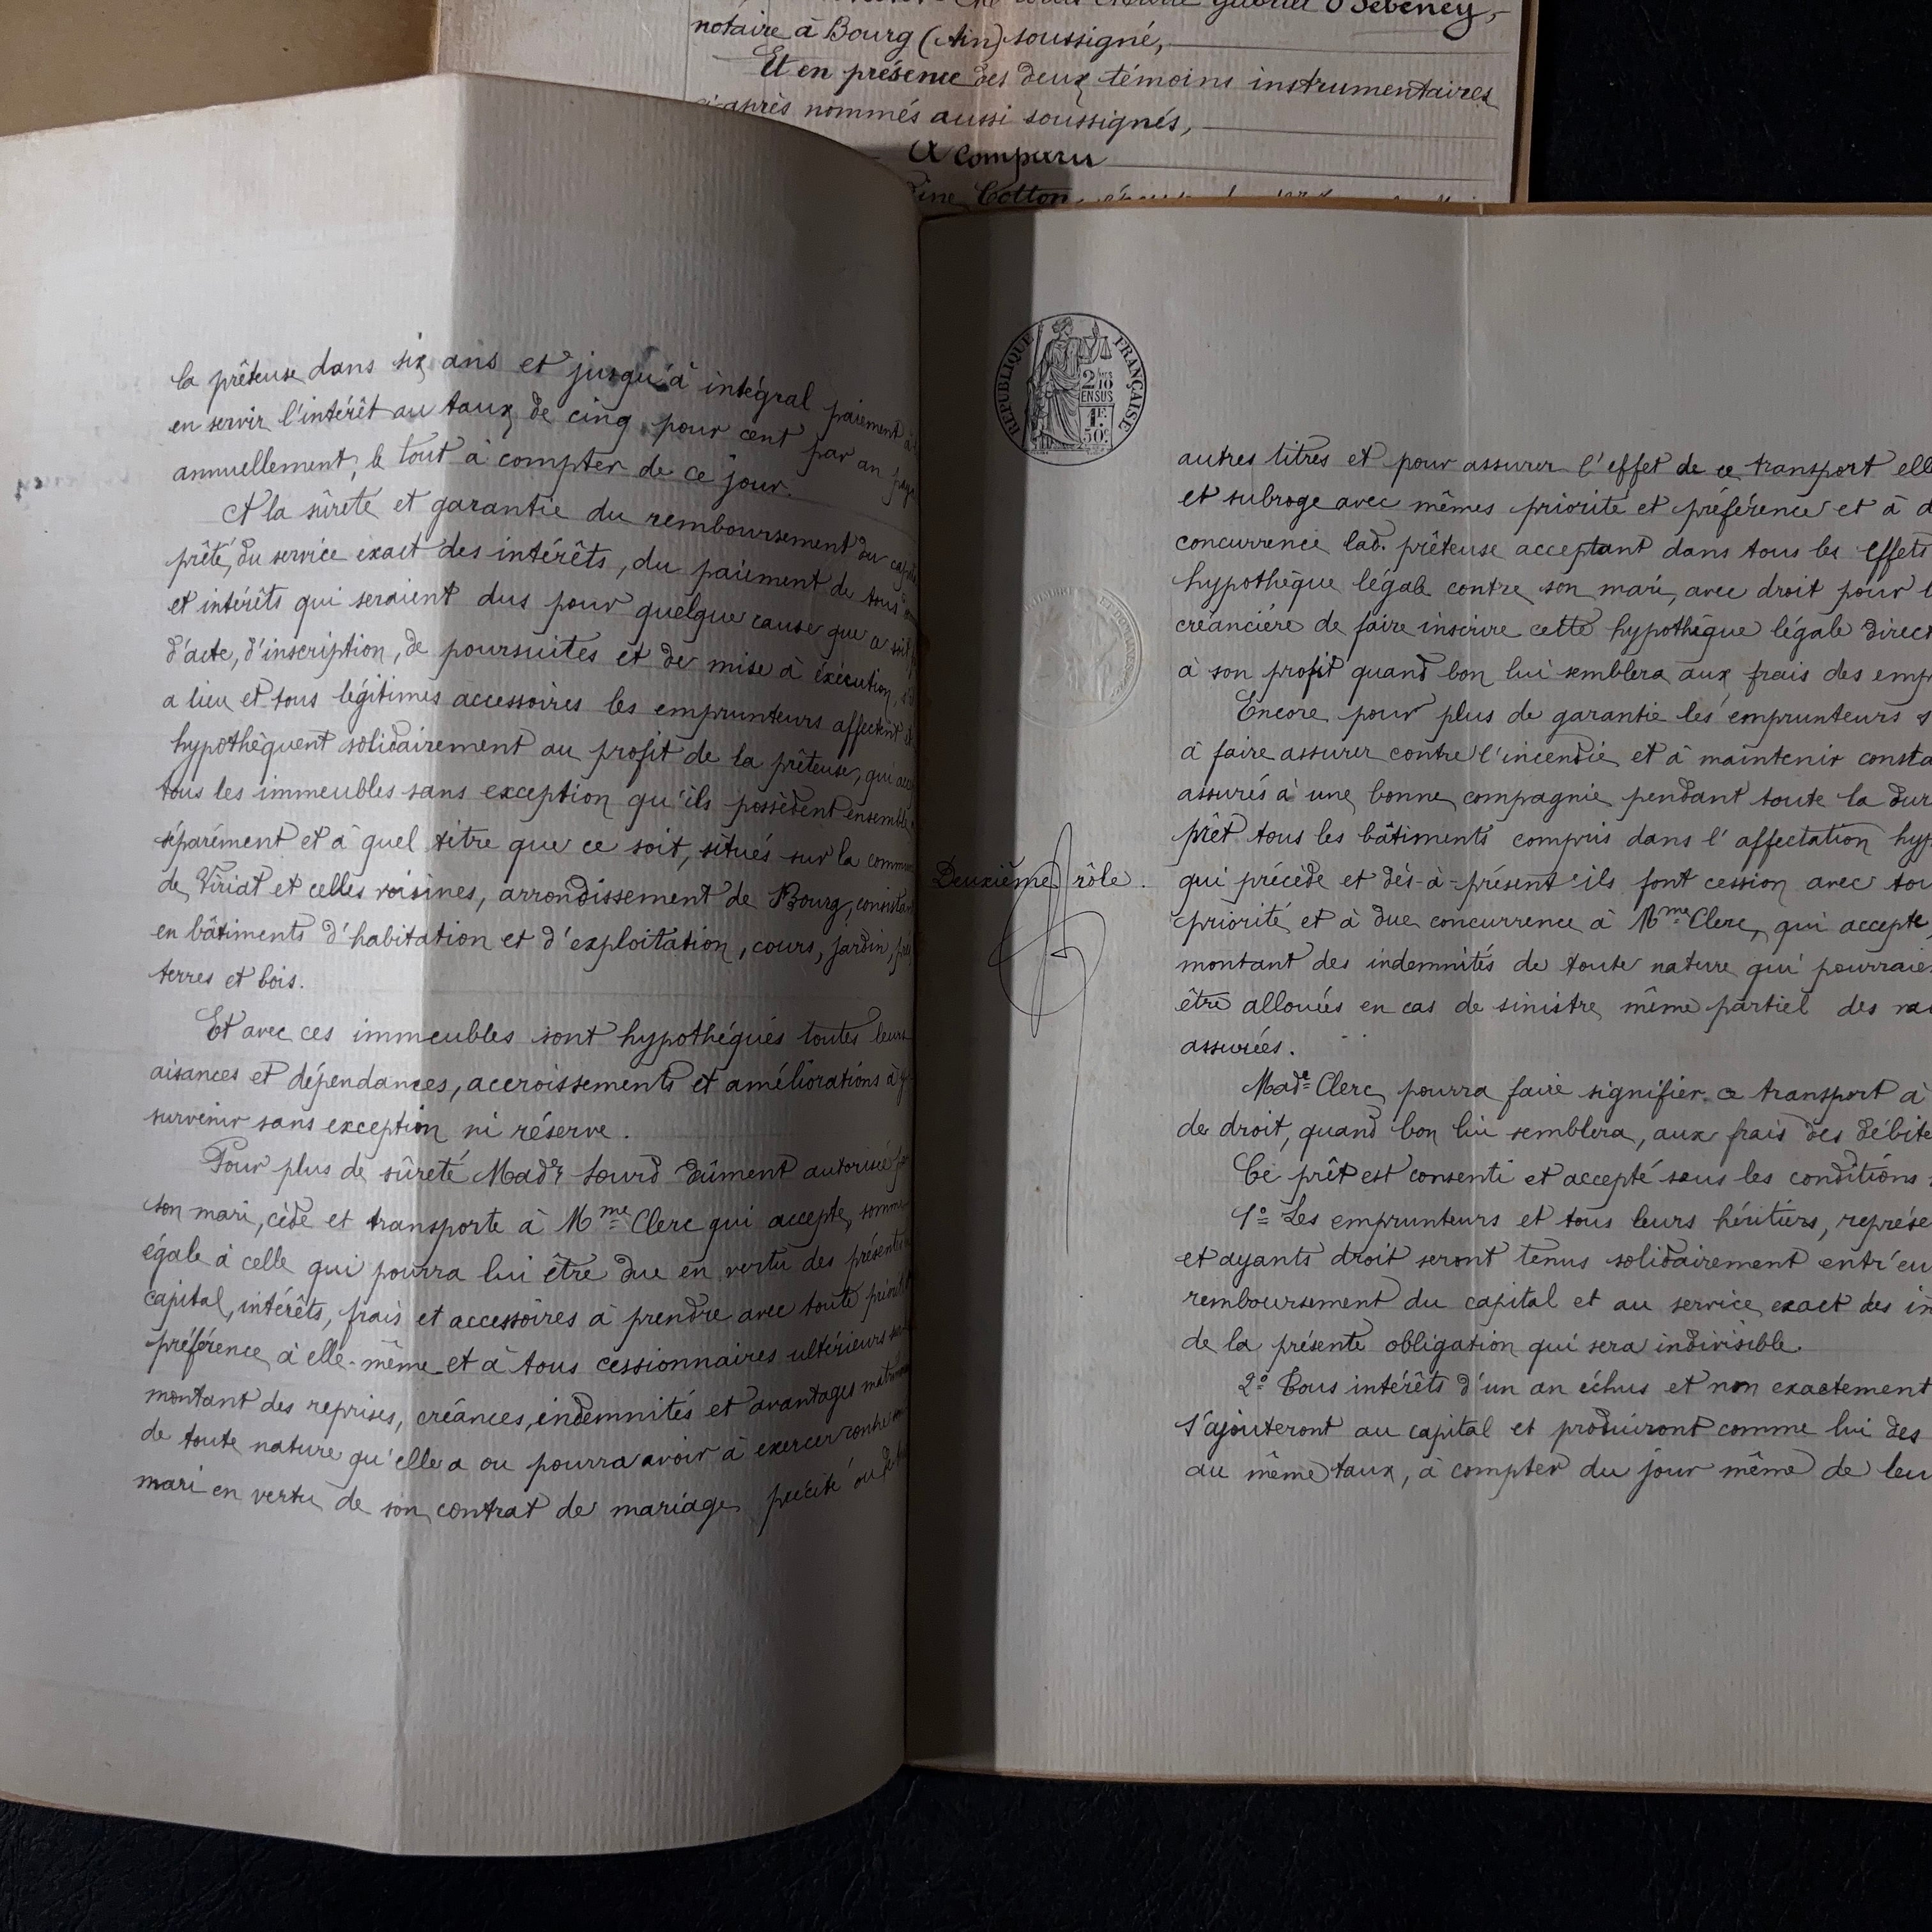 notaire à Bourg (Ain) soussigné,
Et en présence des deux témoins instrumentaires
ci-après nommés aussi soussignés,
A Comparu
Cotton
la prêteuse dans six ans et jusqu'à intégral paiement à
en servir l'intérêt au taux de cinq pour cent par an
annuellement, le tout à compter de ce jour.
A la sûreté et garantie du remboursement du
prêté, du service exact des intérêts, du paiement de tous
et intérêts qui seraient dus pour quelque cause que ce soit,
d'acte, d'inscription, de poursuites et de mise à éxécution,
a lieu et tous légitimes accessoires les emprunteurs affectent et
hypothèquent solidairement au profit de la prêteuse, qui
tous les immeubles sans exception qu'ils possèdent ensemble
séparément et à quel titre que ce soit, situés sur la
de Viriat et celles voisines, arrondissement de Bourg,
en bâtiments d'habitation et d'exploitation, cours, jardin,
terres et bois.
Et avec ces immeubles sont hypothéqués toutes leurs
aisances et dépendances, accroissements et améliorations à y
survenir sans exception ni réserve.
Pour plus de sûreté Made Sourd dûment autorisée
son mari, cède et transporte à Mme Clerc qui accepte, somme
égale à celle qui pourra lui être due en vertu des présentes
capital, intérêts, frais et accessoires à prendre avec toute
préférence à elle-même et à tous cessionnaires ultérieurs
montant des reprises, créances, indemnités et avantages
de toute nature qu'elle a ou pourra avoir à exercer contre
mari en vertu de son contrat de mariage précité ou
REPUBLIQUE FRANÇAISE
2/10
EN SUS
1F.
50c
autres titres et pour assurer l'effet de ce transport
et subroge avec mêmes priorité et préférence et à
concurrence lad. prêteuse acceptant dans tous les effets
hypothèque légale contre son mari, avec droit pour
créancière de faire inscrire cette hypothèque légale
à son profit quand bon lui semblera aux frais des
Encore pour plus de garantie les emprunteurs
à faire assurer contre l'incendie et à maintenir
assurés à une bonne compagnie pendant toute la
prêt tous les bâtiments compris dans l'affectation
Deuxième rôle.
qui précède et dès-à-présent ils font cession avec
priorité et à due concurrence à Mme Clerc, qui accepte
montant des indemnités de toute nature qui
être allouées en cas de sinistre même partiel des
assurées.
Made Clerc pourra faire signifier ce transport à
de droit, quand bon lui semblera, aux frais des
Ce prêt est consenti et accepté sous les conditions
1° Les emprunteurs et tous leurs héritiers,
et ayants droit seront tenus solidairement
remboursement du capital et au service exact des
de la présente obligation qui sera indivisible.
2° Tous intérêts d'un an échus et non exactement
s'ajouteront au capital et produiront comme lui des
au même taux, à compter du jour même de